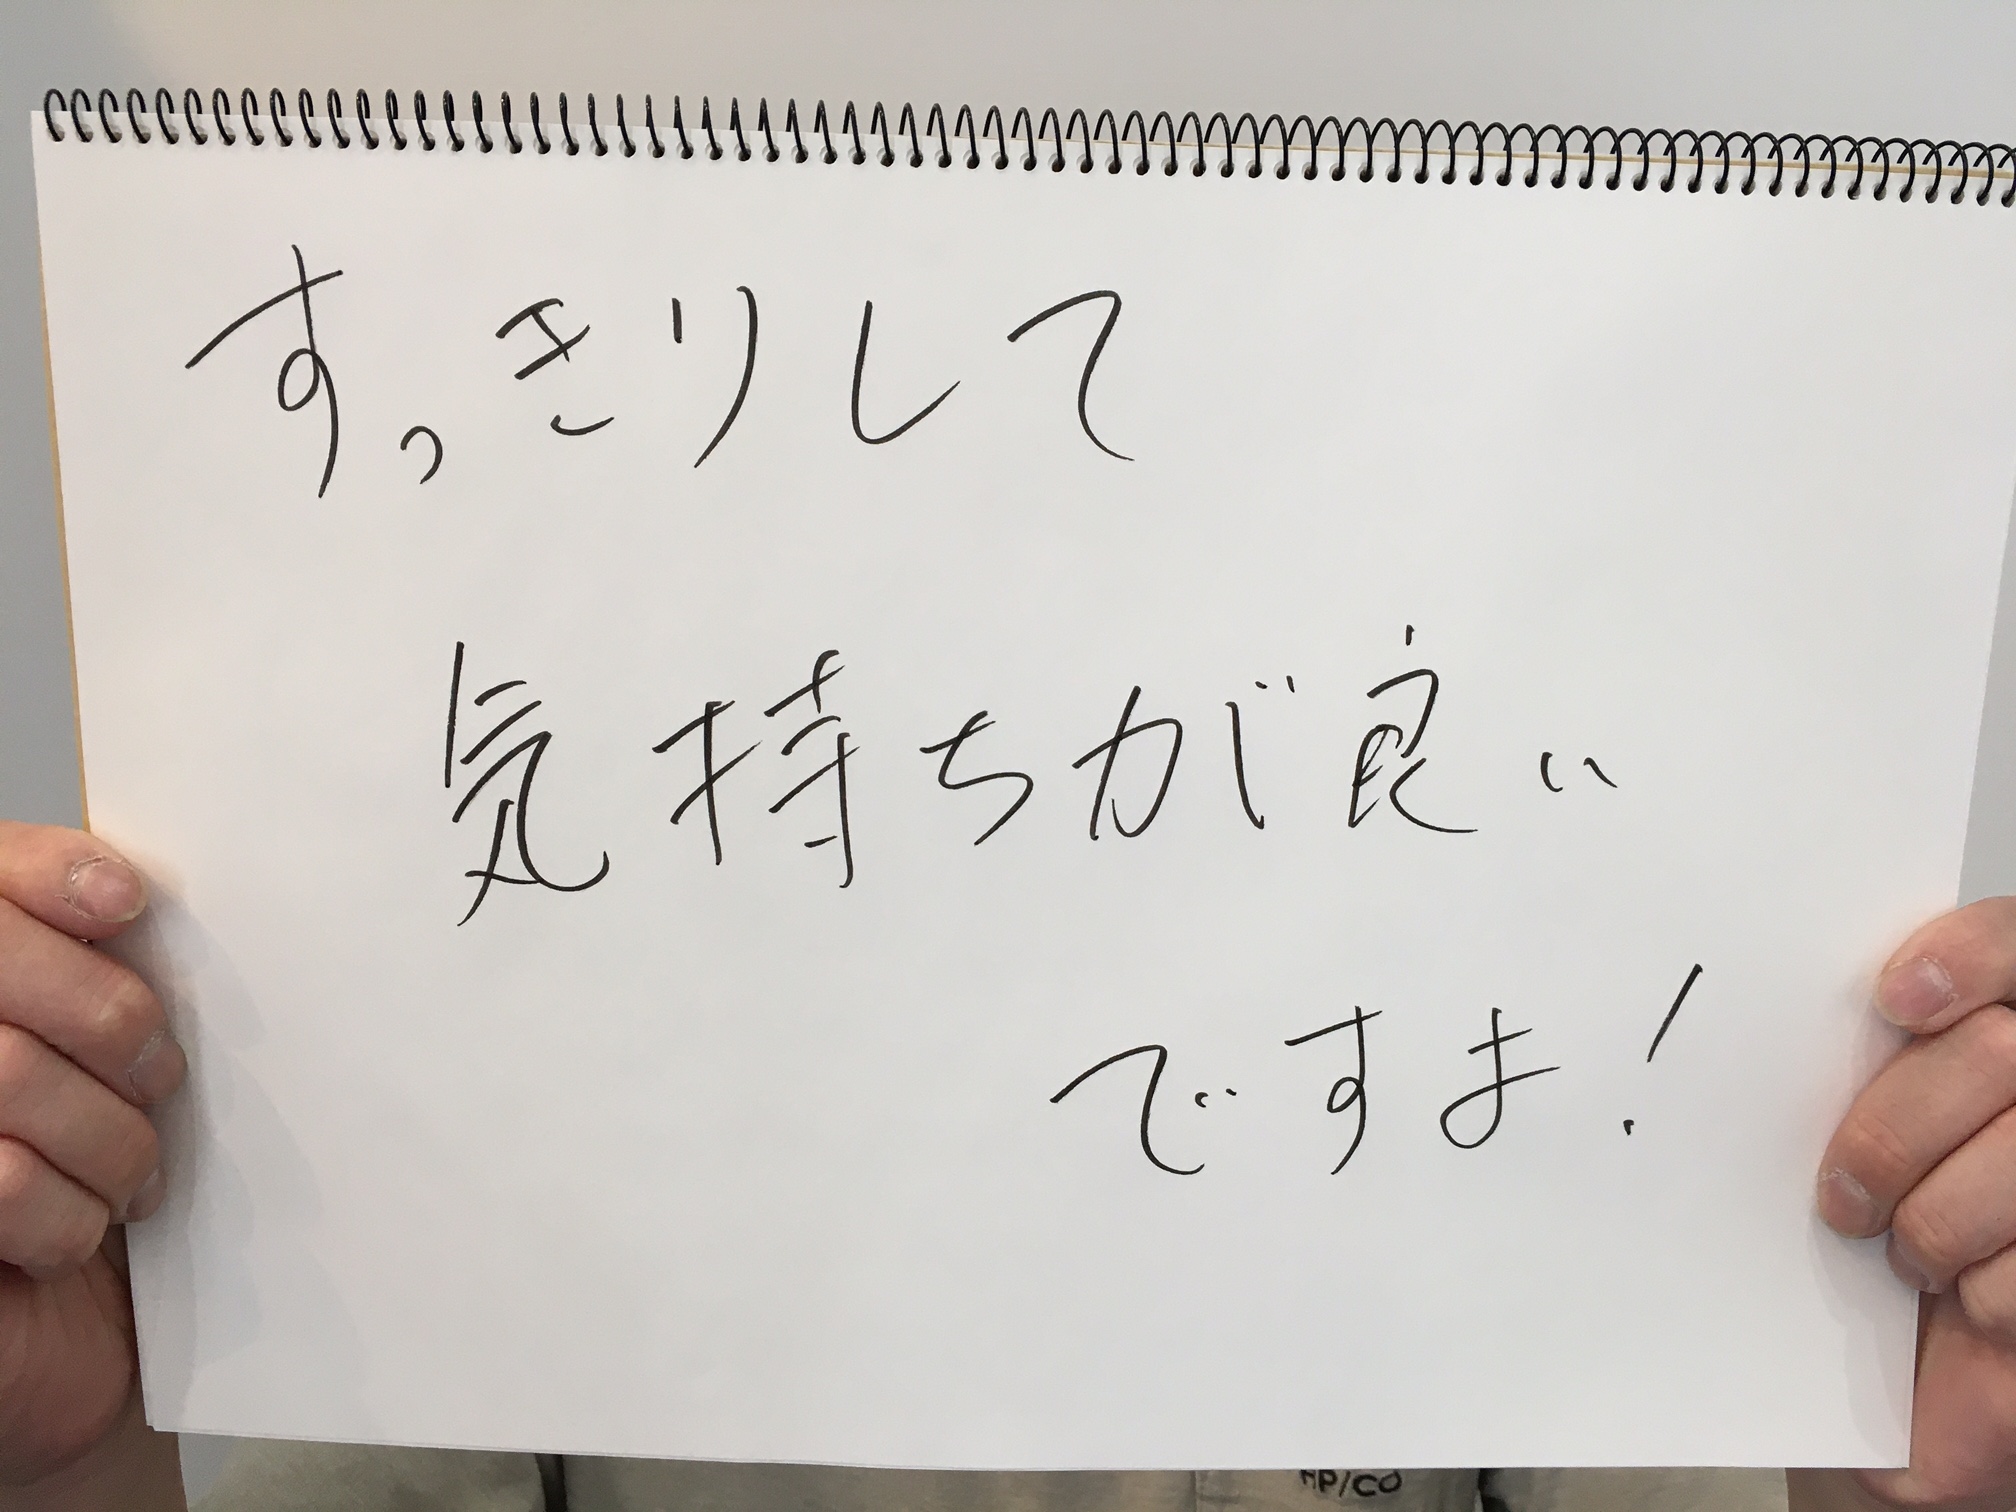 すっきりして
気持ちが良い
ですよ!
MP/CO